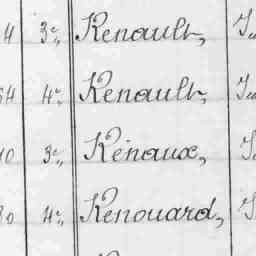 4 3e,, Renault,
54 4e,, Renault,
10 3e,, Rénaux,
20 4e,, Renouard,